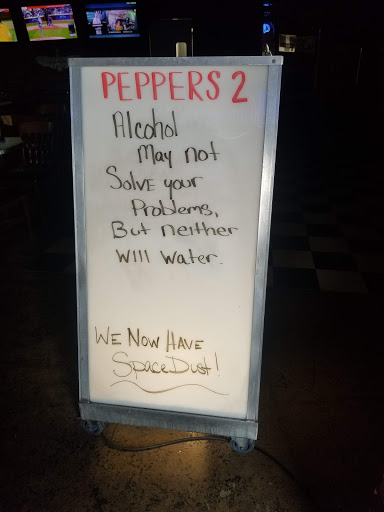 PEPPERS 2
Alcohol
May not
Solve your
Problems,
But neither
will water.
WE NOW HAVE
SpaceDust!